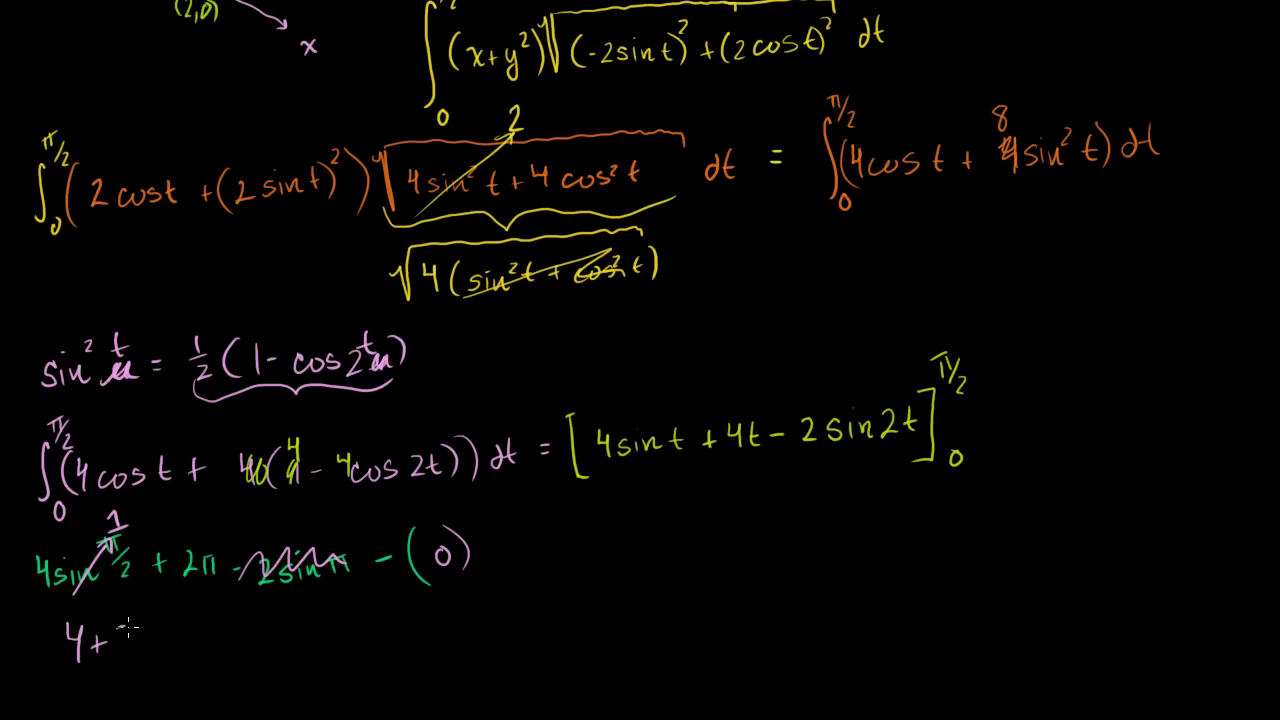 (2,0)
x
∫₀^(π/2) (x+y²)√((-2sint)² + (2cost)²) dt
∫₀^(π/2) (2cost + (2sint)²)√(4sin²t + 4cos²t) dt = ∫₀^(π/2) (4cost + 8sin²t) dt
2
√(4(sin²t + cos²t))
sin²t = ½(1 - cos2t)
∫₀^(π/2) (4cost + (4 - 4cos2t)) dt = [4sint + 4t - 2sin2t]₀^(π/2)
1
4sin π/2 + 2π - 2sinπ - (0)
4+